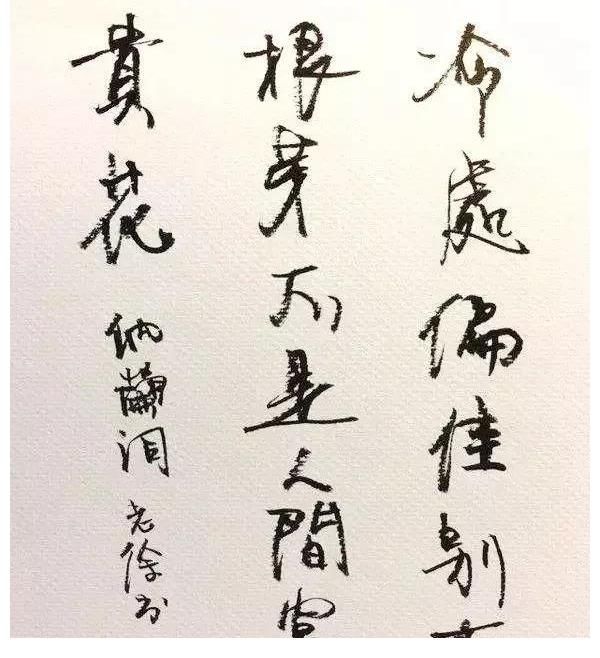 冷處偏佳別
根芽不是人間富
貴花 納蘭詞 老徐书